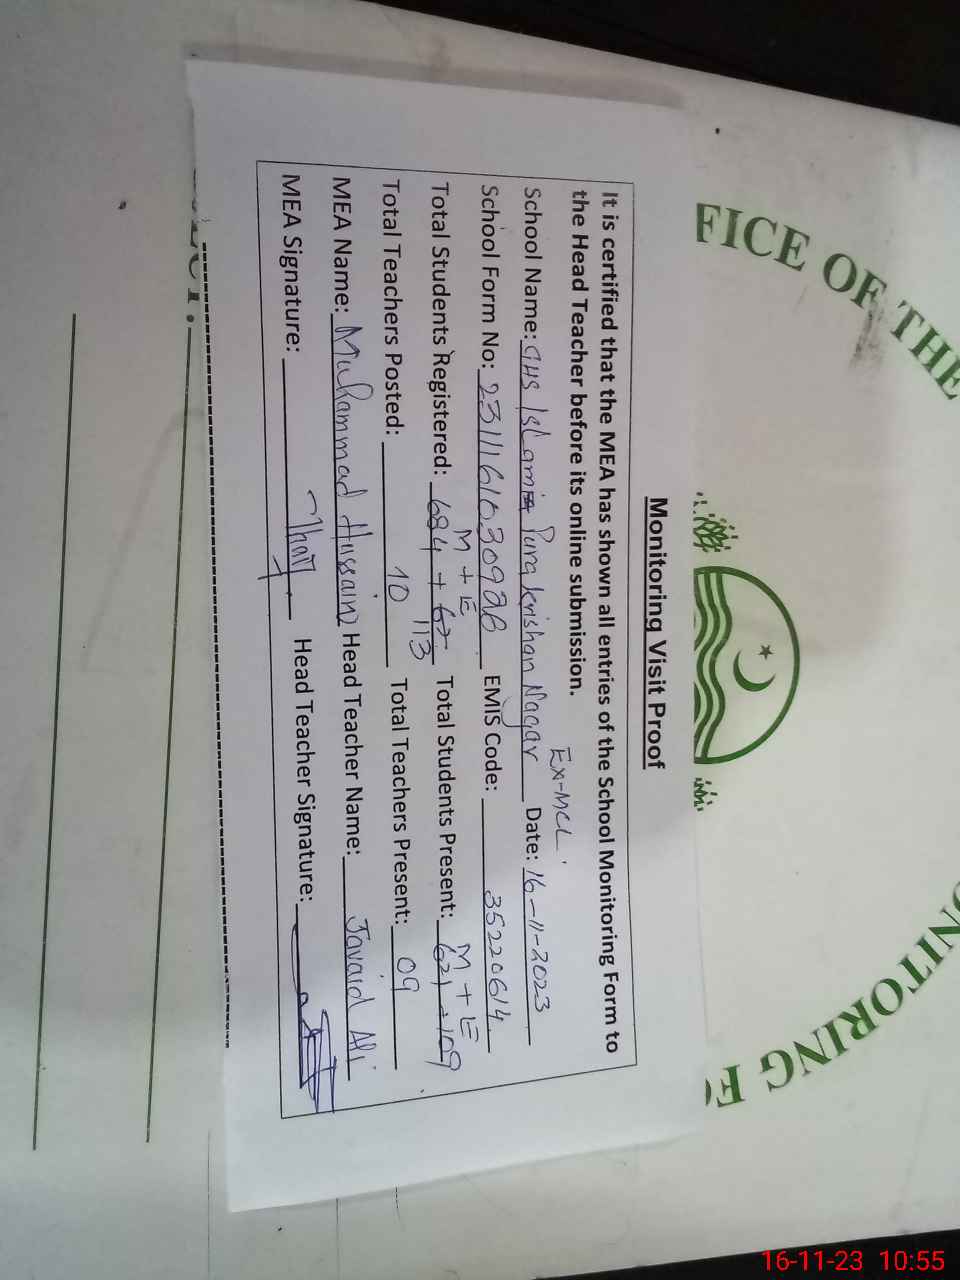 FFICE OF THE
ONITORING FO
Monitoring Visit Proof
It is certified that the MEA has shown all entries of the School Monitoring Form to
the Head Teacher before its online submission.
Ex-MCL.
School Name: GHS Islamia Pura Krishan Nagar Date: 16-11-2023
School Form No: EMIS Code: 35220614
M + E M + E
Total Students Registered: 684 + 67 113 Total Students Present: 621 + 109
Total Teachers Posted: 10 Total Teachers Present: 09
MEA Name: Muhammad Hussain Head Teacher Name: Javaid Ali
MEA Signature: Head Teacher Signature:
16-11-23 10:55